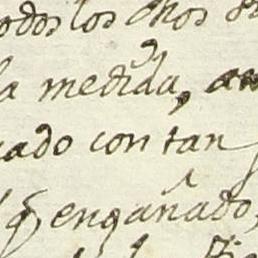 odos los años
la medida, au
ado con tan
q, engañado,